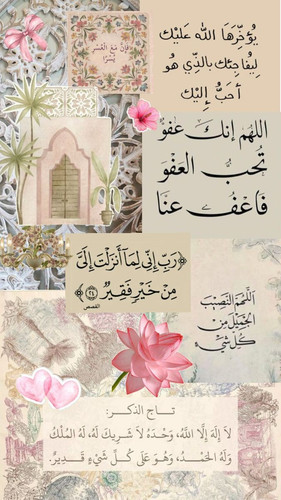 فَإِنَّ مَعَ الْعُسْرِ
يُسْرًا
يُؤخِّرَهَا الله عَلَيْك
لِيفُاجِئك بالذِّي هُو
أحَبُّ إِليْك
اللهُم إنكَ عَفوٌ
تُحب العَفوَ
فَاعْفُ عنَا
﴿رَبِّ إِنِّي لِمَا أَنزَلْتَ إِلَيَّ
مِنْ خَيْرٍ فَقِيرٌ ﴿٢٤﴾
القصص
اللَّهُم النَّصِيبَ
الجَميْلَ مِن
كُل شيْءٍ
تاج الذكر:
لَا إِلَهَ إِلَّا اللَّهُ، وَحْدَهُ لَا شَرِيكَ لَهُ، لَهُ المُلْكُ
وَلَهُ الحَمْدُ، وَهُوَ عَلَى كُلِّ شَيْءٍ قَدِيرٌ.